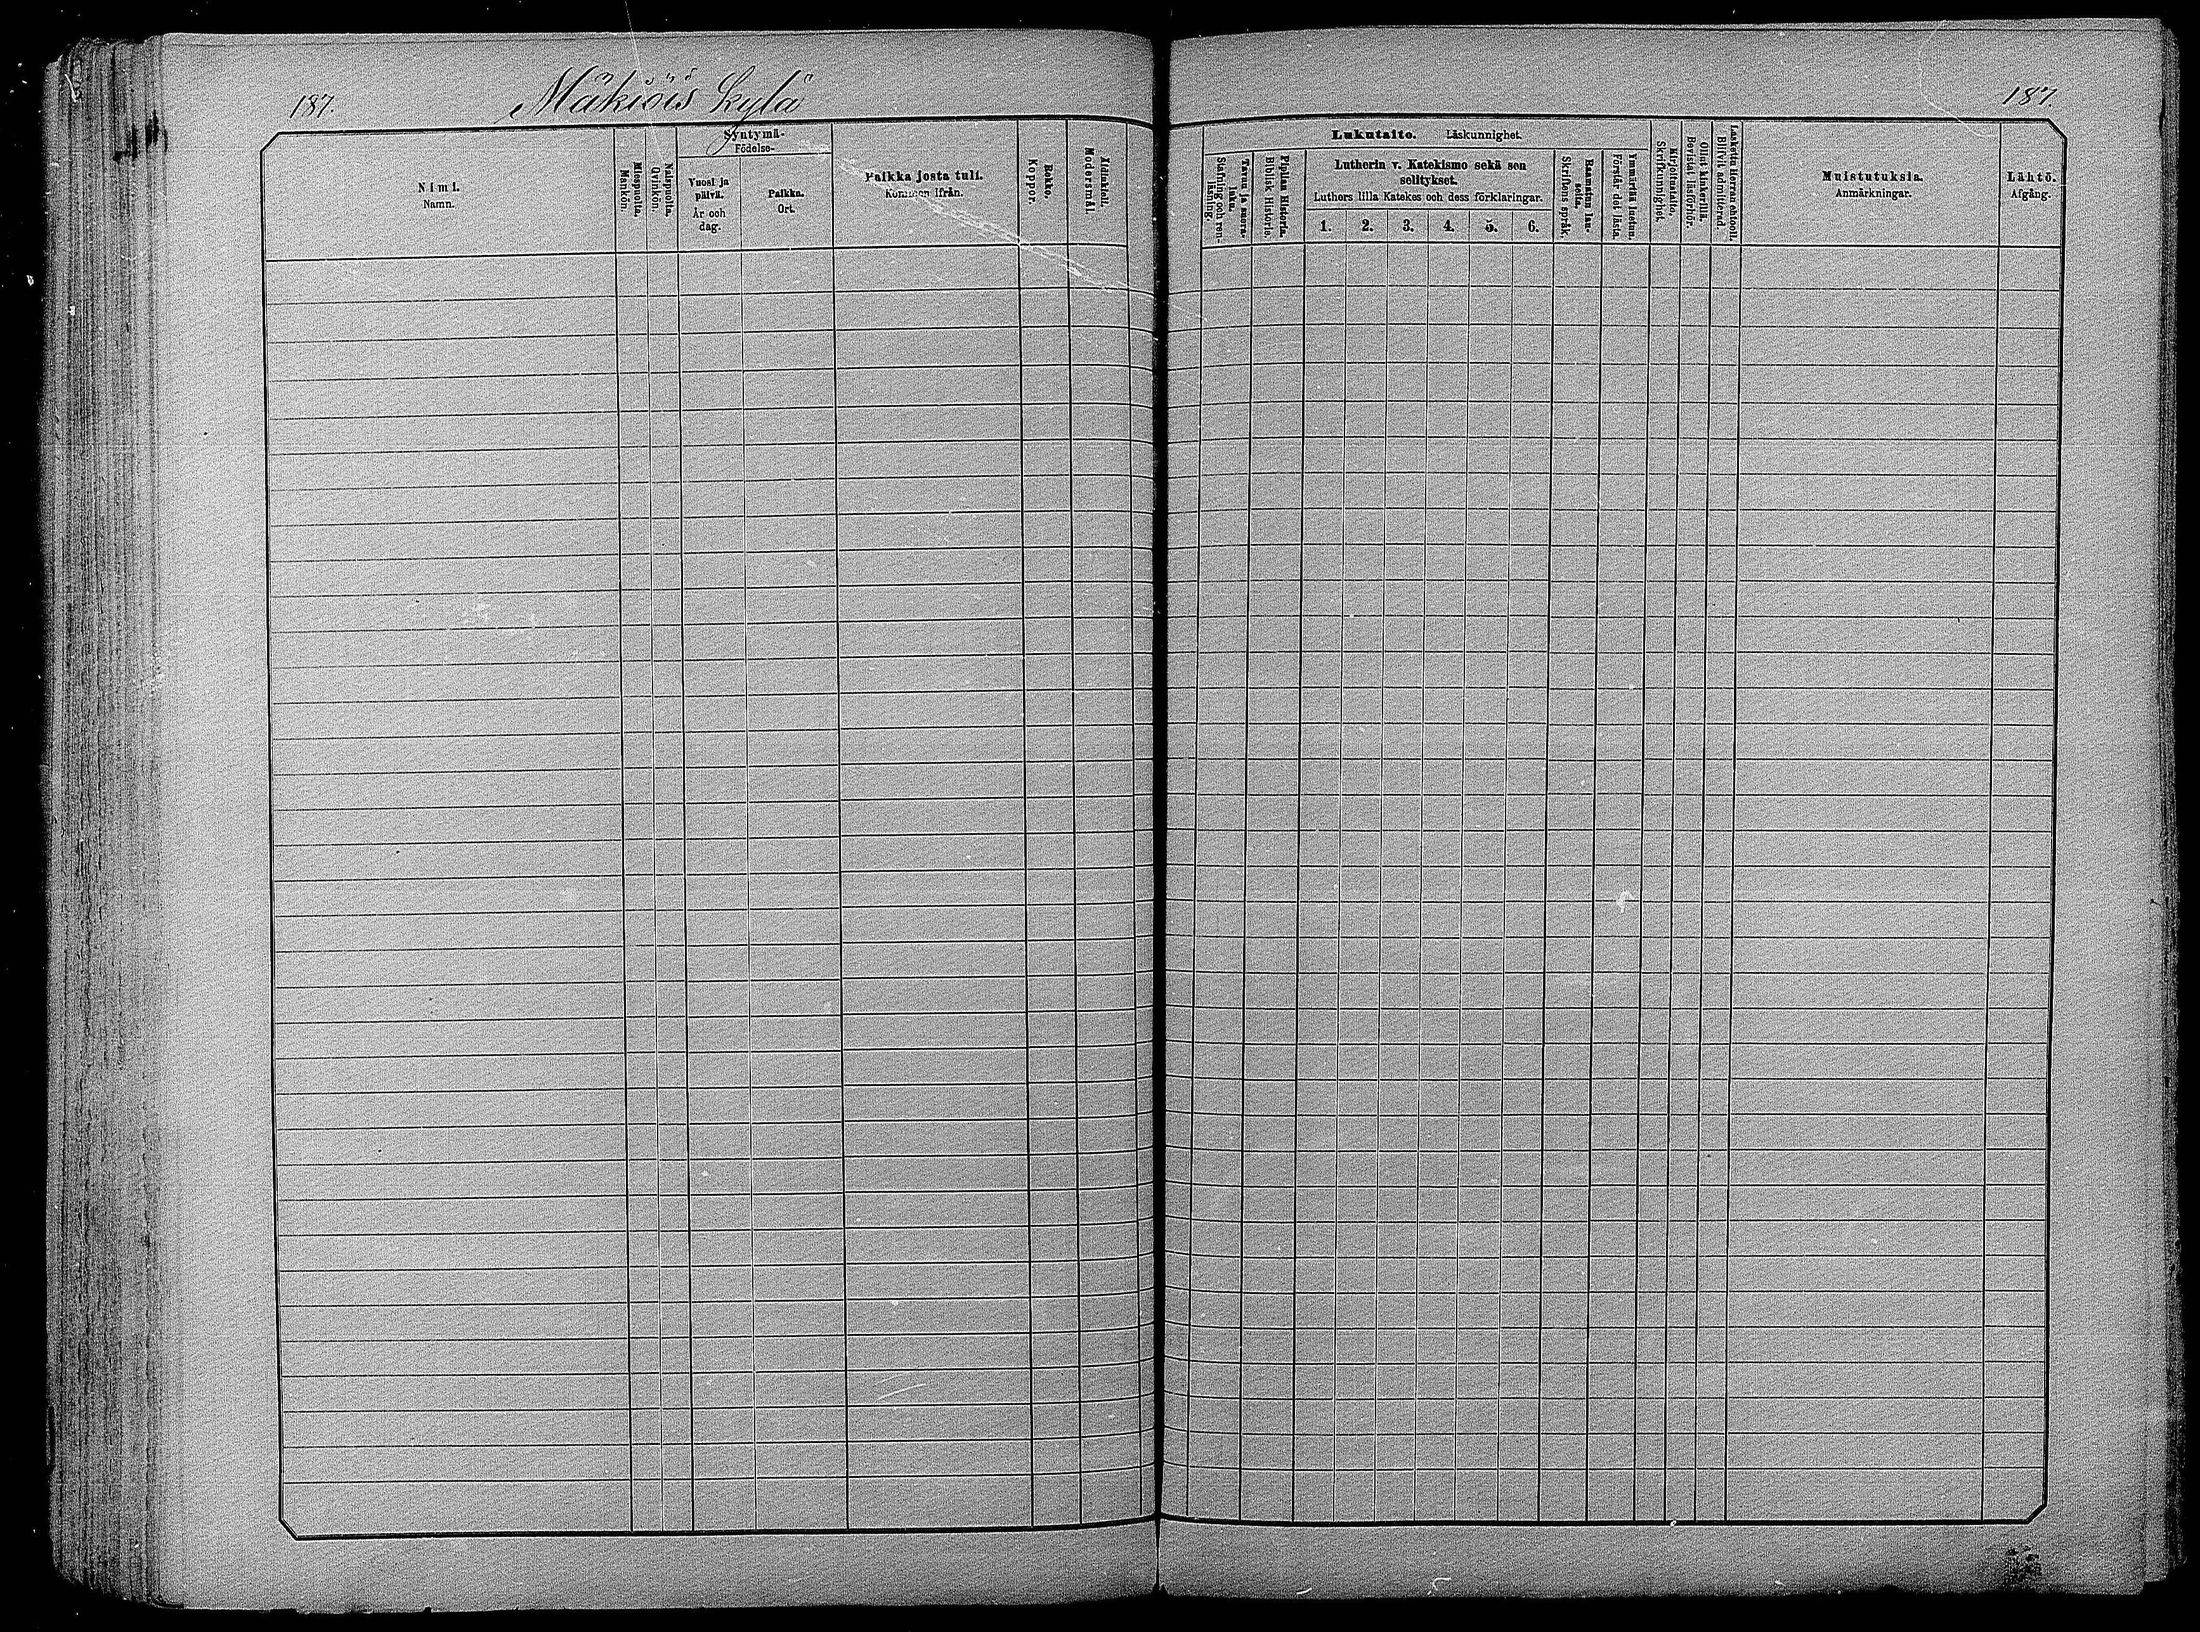 187.
Mäkiöis Kylä
187.
Nimi.
Namn.
Miespuolta.
Mankön.
Naispuolta.
Qvinkön.
Syntymä-
Födelse-
Vuosi ja
päivä.
År och
dag.
Paikka.
Ort.
Paikka josta tuli.
Kommen ifrån.
Rokko.
Koppor.
Äidinkieli.
Modersmål.
Lukutaito. Läskunnighet.
Tavuu ja suora-
luku.
Stafning och ren-
läsning.
Piplian Historia.
Biblisk Historie.
Lutherin v. Katekismo sekä sen
selitykset.
Luthers lilla Katekes och dess förklaringar.
1. 2. 3. 4. 5. 6.
Raamatun lau-
seita.
Skriftens språk.
Ymmärtää luetun.
Förstår det lästa.
Kirjoitustaito.
Skrifkunnighet.
Ollut kinkerillä.
Bevistat läsförhör.
Laskettu Herran ehtooll.
Blifvit admitterad.
Muistutuksia.
Anmärkningar.
Lähtö.
Afgång.